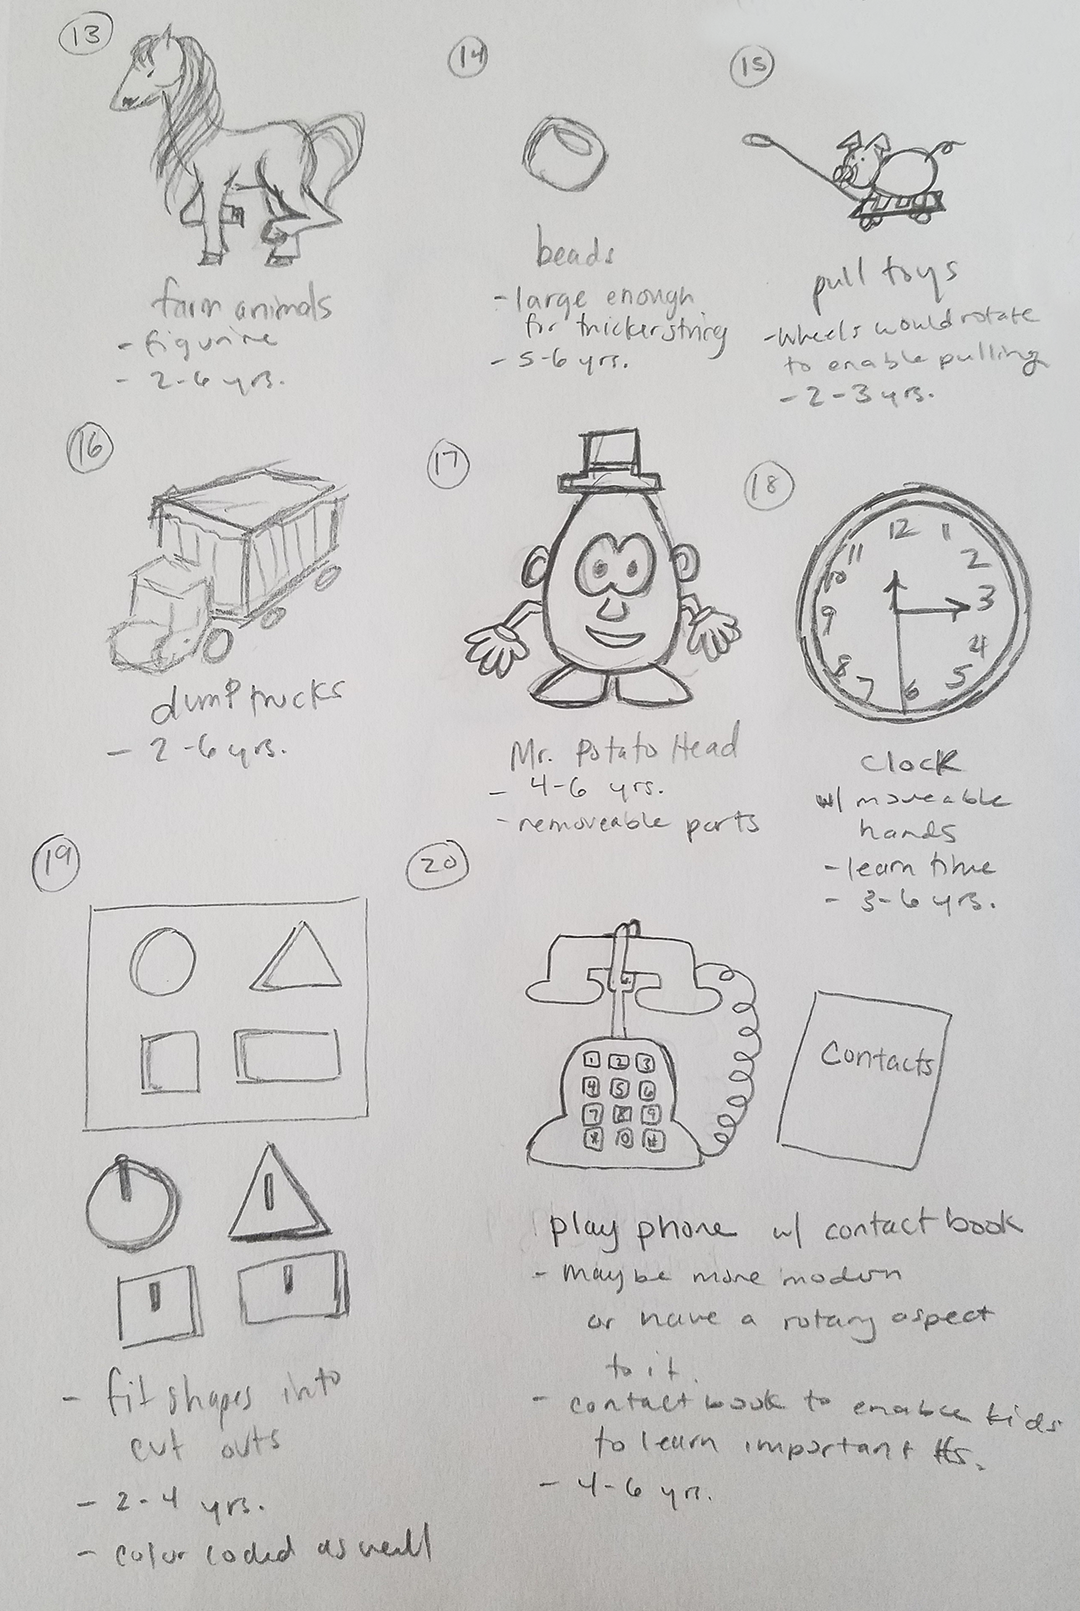 13
farm animals
- figurine
- 2-6 yrs.
14
beads
- large enough
for thicker string
- 5-6 yrs.
15
pull toys
- Wheels would rotate
to enable pulling
- 2-3 yrs.
16
dump trucks
- 2-6 yrs.
17
Mr. Potato Head
- 4-6 yrs.
- removeable parts
18
12
1
2
3
4
5
6
7
8
9
10
11
Clock
w/ moveable
hands
- learn time
- 3-6 yrs.
19
- fit shapes into
cut outs
- 2-4 yrs.
- color coded as well
20
1 2 3
4 5 6
7 8 9
* 0 #
Contacts
play phone w/ contact book
- Maybe more modern
or have a rotary aspect
to it.
- contact book to enable kids
to learn important #s.
- 4-6 yrs.